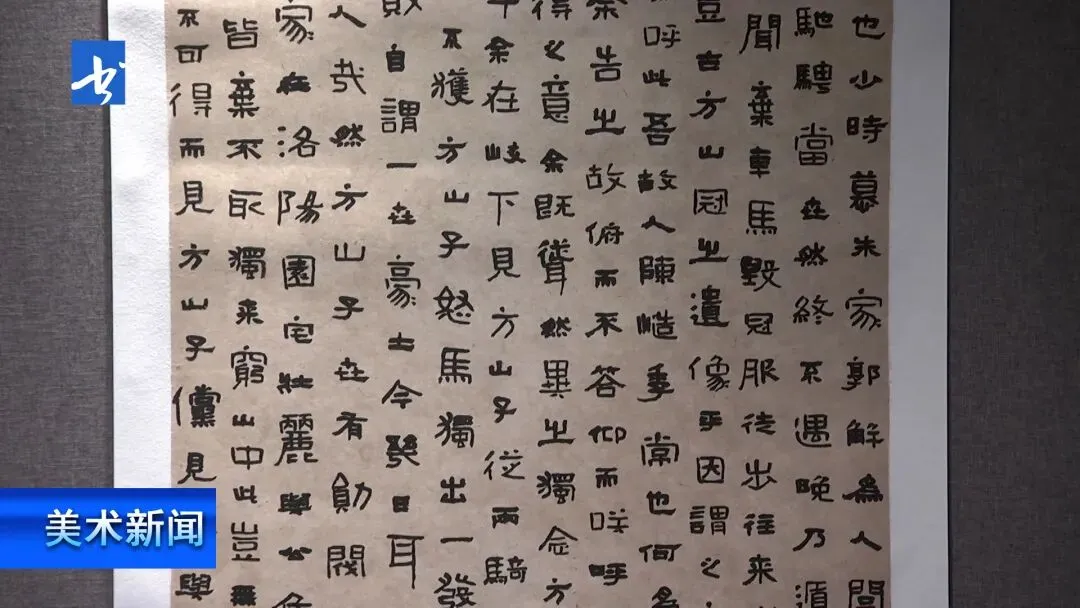 也少時慕朱家郭解為人閭
馳騁當世然終不遇晚乃遁
聞棄車馬毀冠服徒步往來
豈古方山冠之遺像乎因謂之
呼此吾故人陳慥季常也何為
余告之故俯而不答仰而咲呼
得之意余既聳然異之獨念方
余在岐下見方山子從兩騎
不獲方山子怒馬獨出一發
敗自謂一世豪士今幾日耳
人哉然方山子世有勛閥
家在洛陽園宅壯麗與公侯
皆棄不取獨來窮山中此豈無
不可得而見方山子儻見與
书
美术新闻